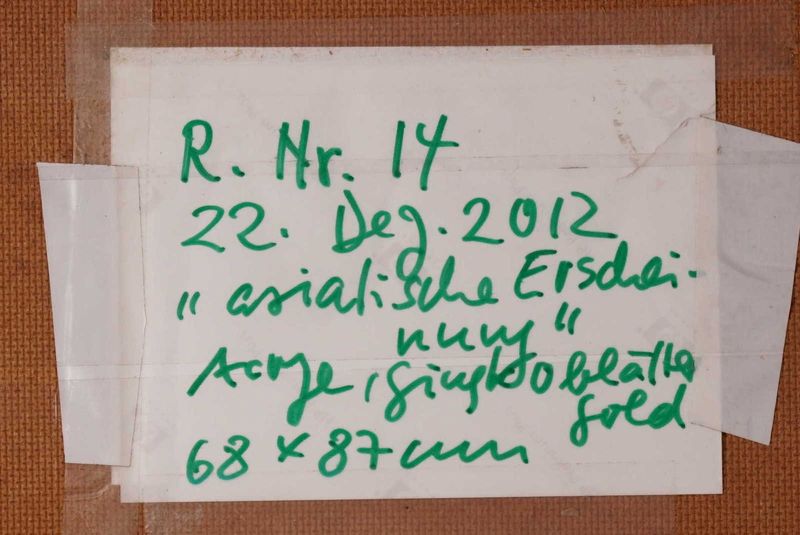 R. Nr. 14
22. Dez. 2012
„ asiatische Erschei-
nung “
Acryl, gingkoblätter
gold
68 x 87 cm